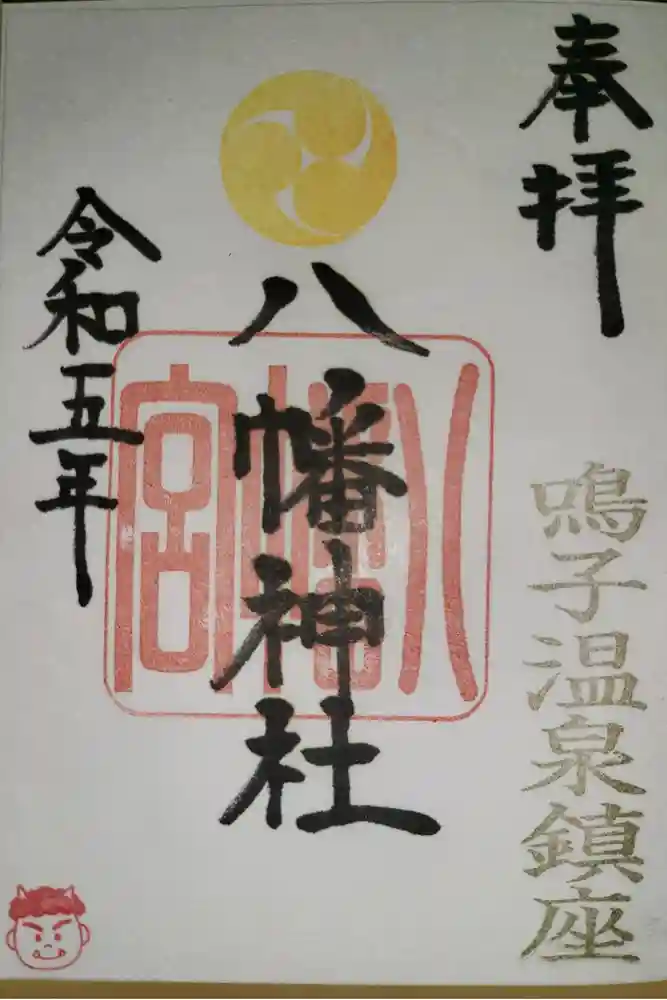 奉拝
鳴子温泉鎮座
八幡神社
八幡宮
令和五年